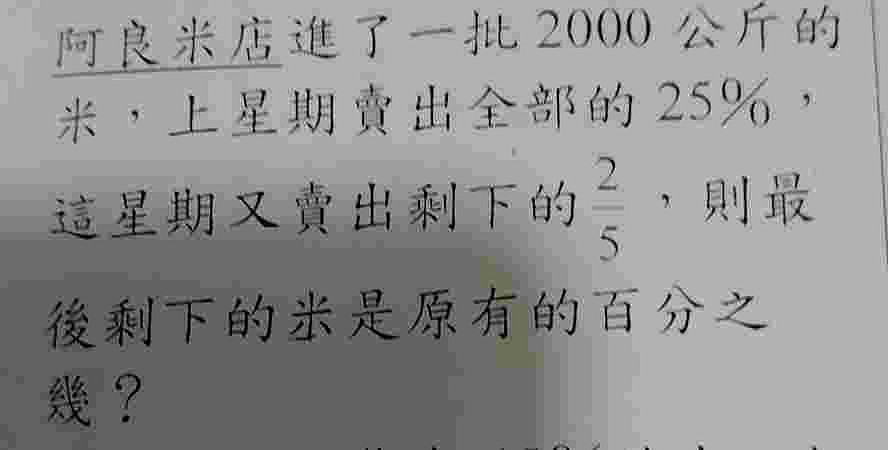 阿良米店進了一批 2000 公斤的
米，上星期賣出全部的 25%，
這星期又賣出剩下的 2/5，則最
後剩下的米是原有的百分之
幾？